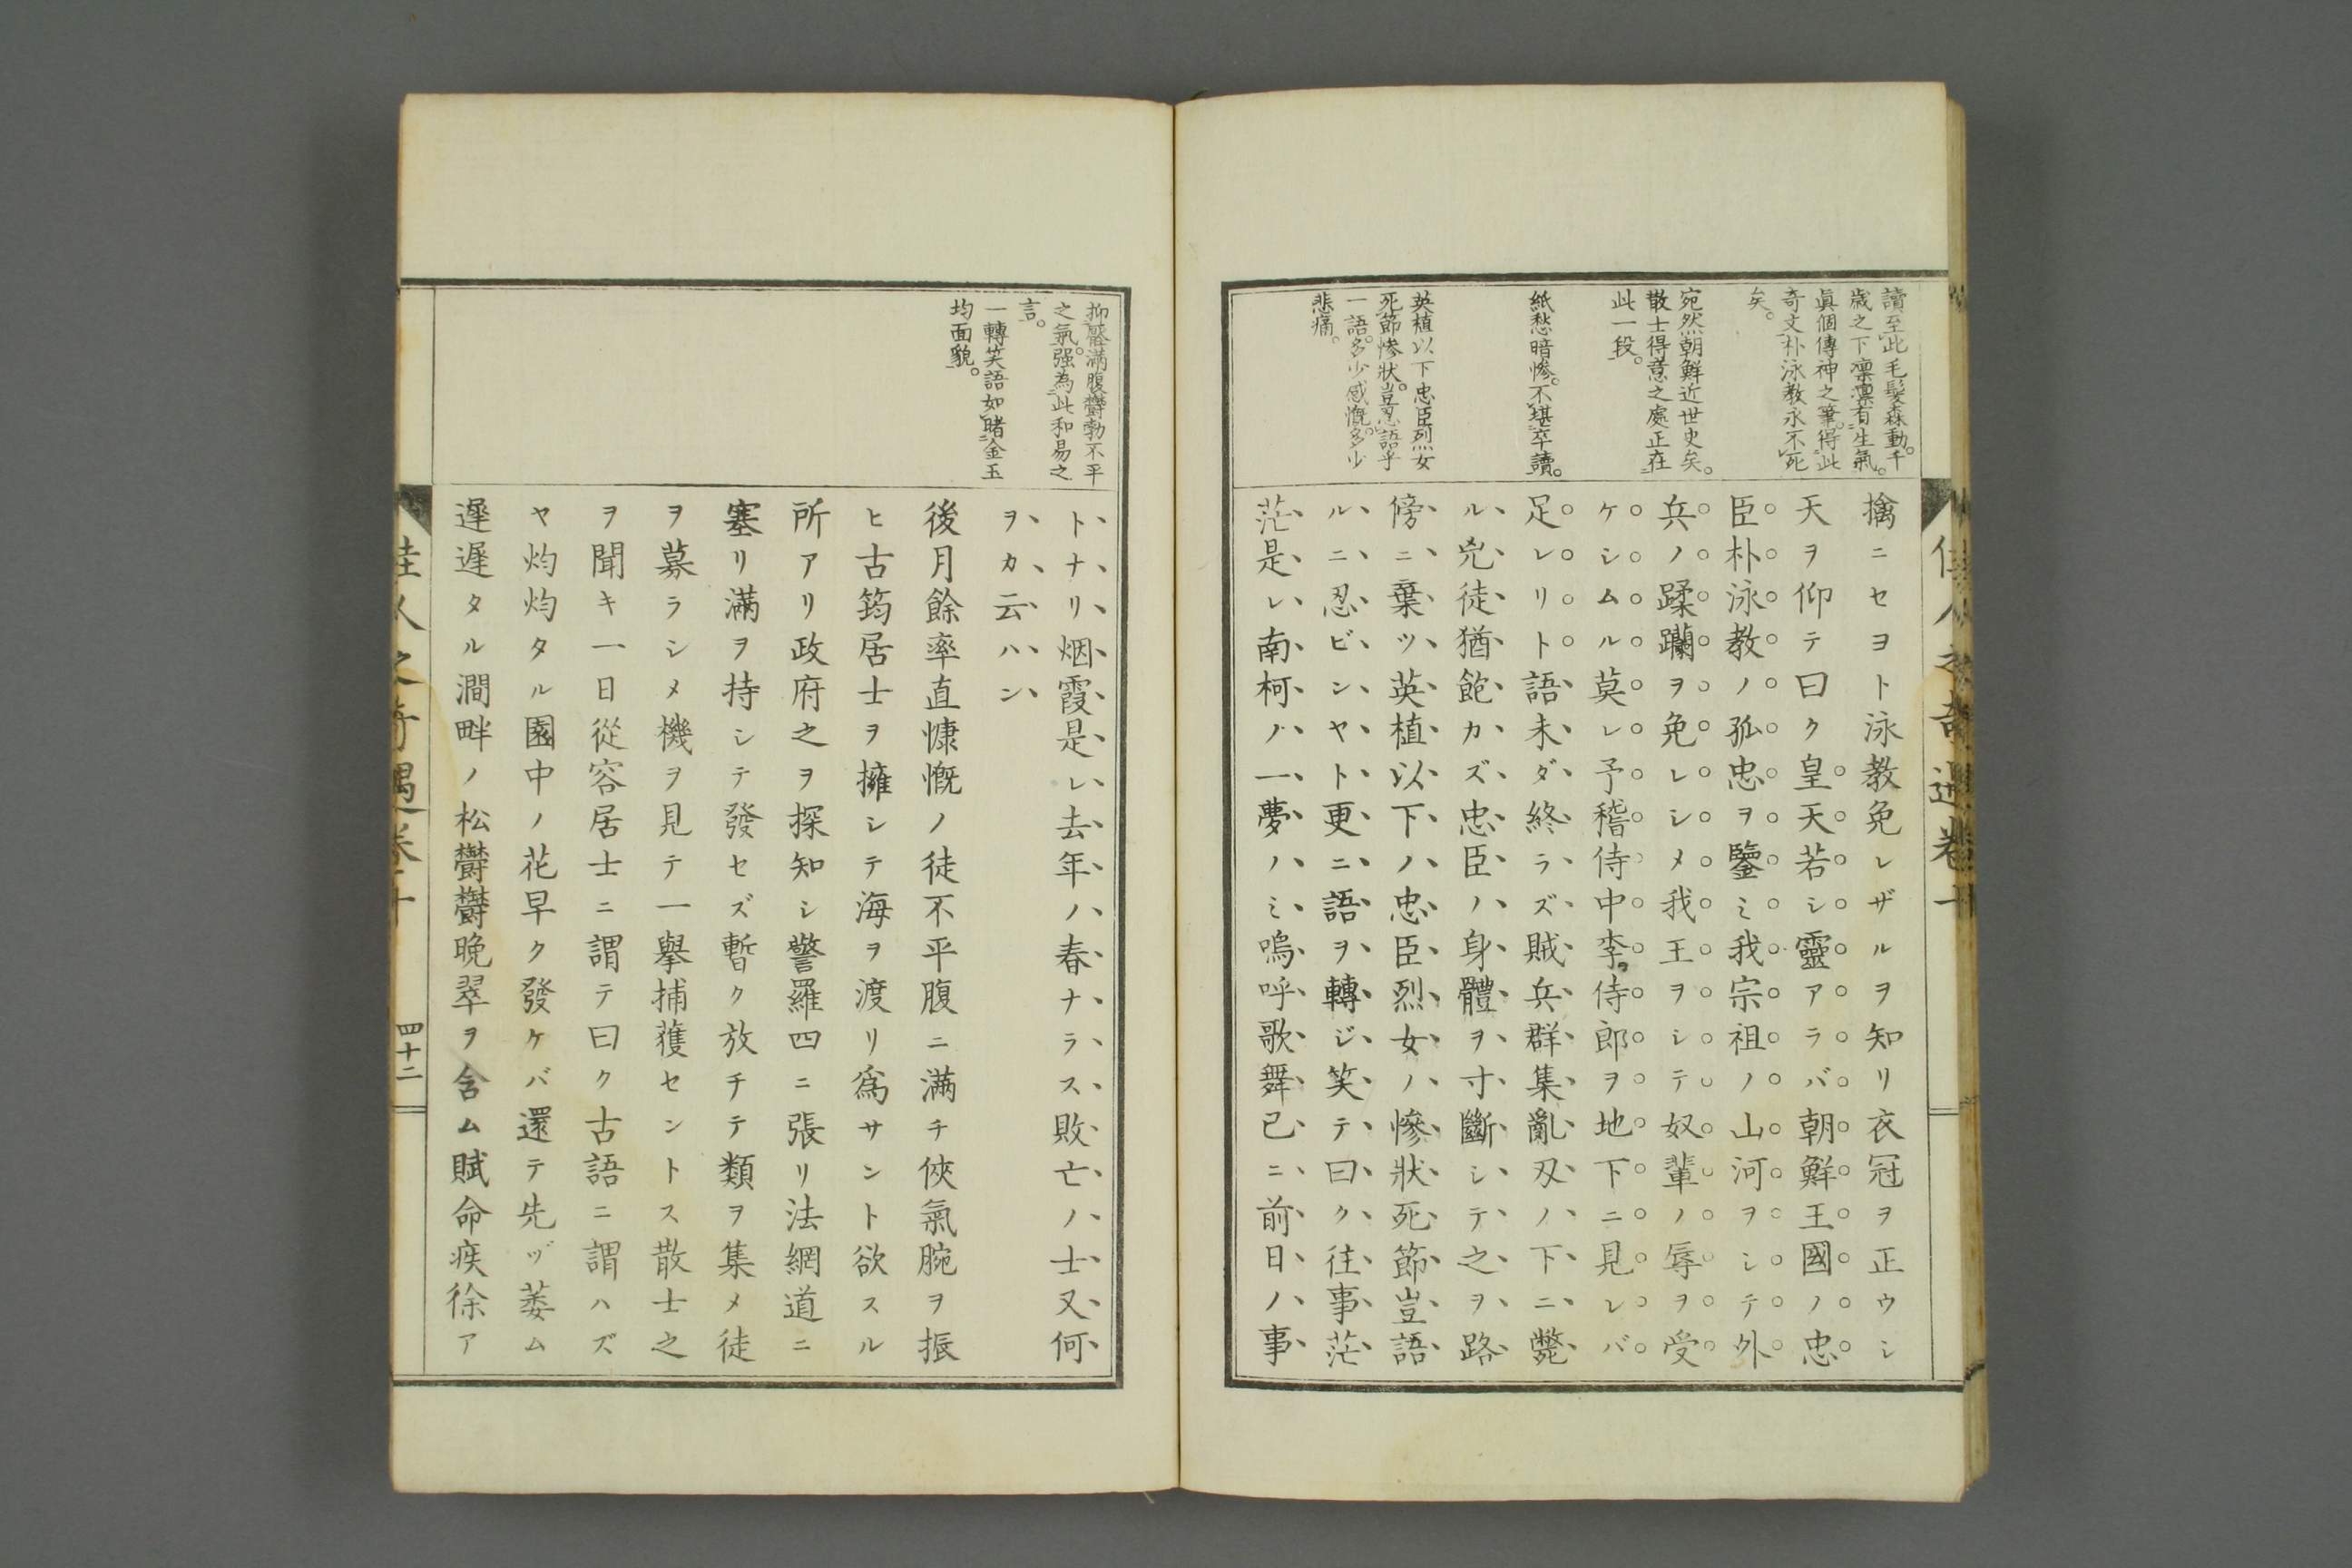 佳人之奇遇卷十
讀至此毛髮森動。千
歳之下凛凛有生氣。
眞個傳神之筆。得此
奇文朴泳教永不死
矣。
宛然朝鮮近世史矣。
散士得意之處正在
此一段。
紙愁暗慘。不堪卒讀。
英植以下忠臣烈女
死節慘狀。豈忍語乎
一語。多少感慨。多少
悲痛。
擒ニセヨト泳教免レザルヲ知リ衣冠ヲ正ウシ
天ヲ仰テ曰ク皇天若シ靈アラバ朝鮮王國ノ忠
臣朴泳教ノ孤忠ヲ鑒ミ我宗祖ノ山河ヲシテ外
兵ノ蹂躪ヲ免レシメ我王ヲシテ奴輩ノ辱ヲ受
ケシムル莫レ予稽侍中李侍郎ヲ地下ニ見レバ
足レリト語未ダ終ラズ賊兵群集亂刄ノ下ニ斃
ル兇徒猶飽カズ忠臣ノ身體ヲ寸斷シテ之ヲ路
傍ニ棄ツ英植以下ノ忠臣烈女ノ慘狀死節豈語
ルニ忍ビンヤト更ニ語ヲ轉ジ笑テ曰ク往事茫
茫是レ南柯ノ一夢ノミ嗚呼歌舞已ニ前日ノ事
抑壓滿腹欝勃不平
之氣。强為此和易之
言。
一轉笑語如睹金玉
均面貌。
トナリ烟霞是レ去年ノ春ナラス敗亡ノ士又何
ヲカ云ハン
後月餘率直慷慨ノ徒不平腹ニ滿チ俠氣腕ヲ振
ヒ古筠居士ヲ擁シテ海ヲ渡リ爲サント欲スル
所アリ政府之ヲ探知シ警羅四ニ張リ法網道ニ
塞リ滿ヲ持シテ發セズ暫ク放チテ類ヲ集メ徒
ヲ募ラシメ機ヲ見テ一擧捕獲セントス散士之
ヲ聞キ一日從容居士ニ謂テ曰ク古語ニ謂ハズ
ヤ灼灼タル園中ノ花早ク發ケバ還テ先ヅ萎ム
遲遲タル澗畔ノ松欝欝晩翠ヲ含ム賦命疾徐ア
佳人之奇遇卷十
四十二